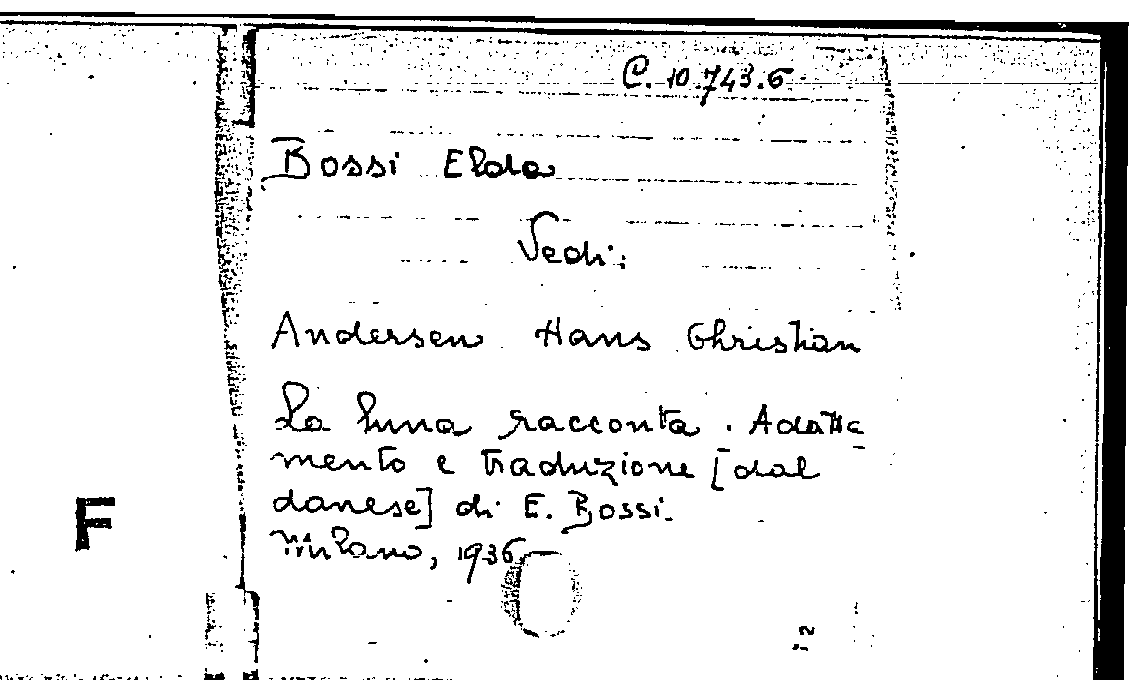 C. 10.743.6
Bossi Elda
Vedi:
Andersen Hans Christian
La luna racconta. Adatta
mento e traduzione [dal
danese] di E. Bossi.
Milano, 1936
F